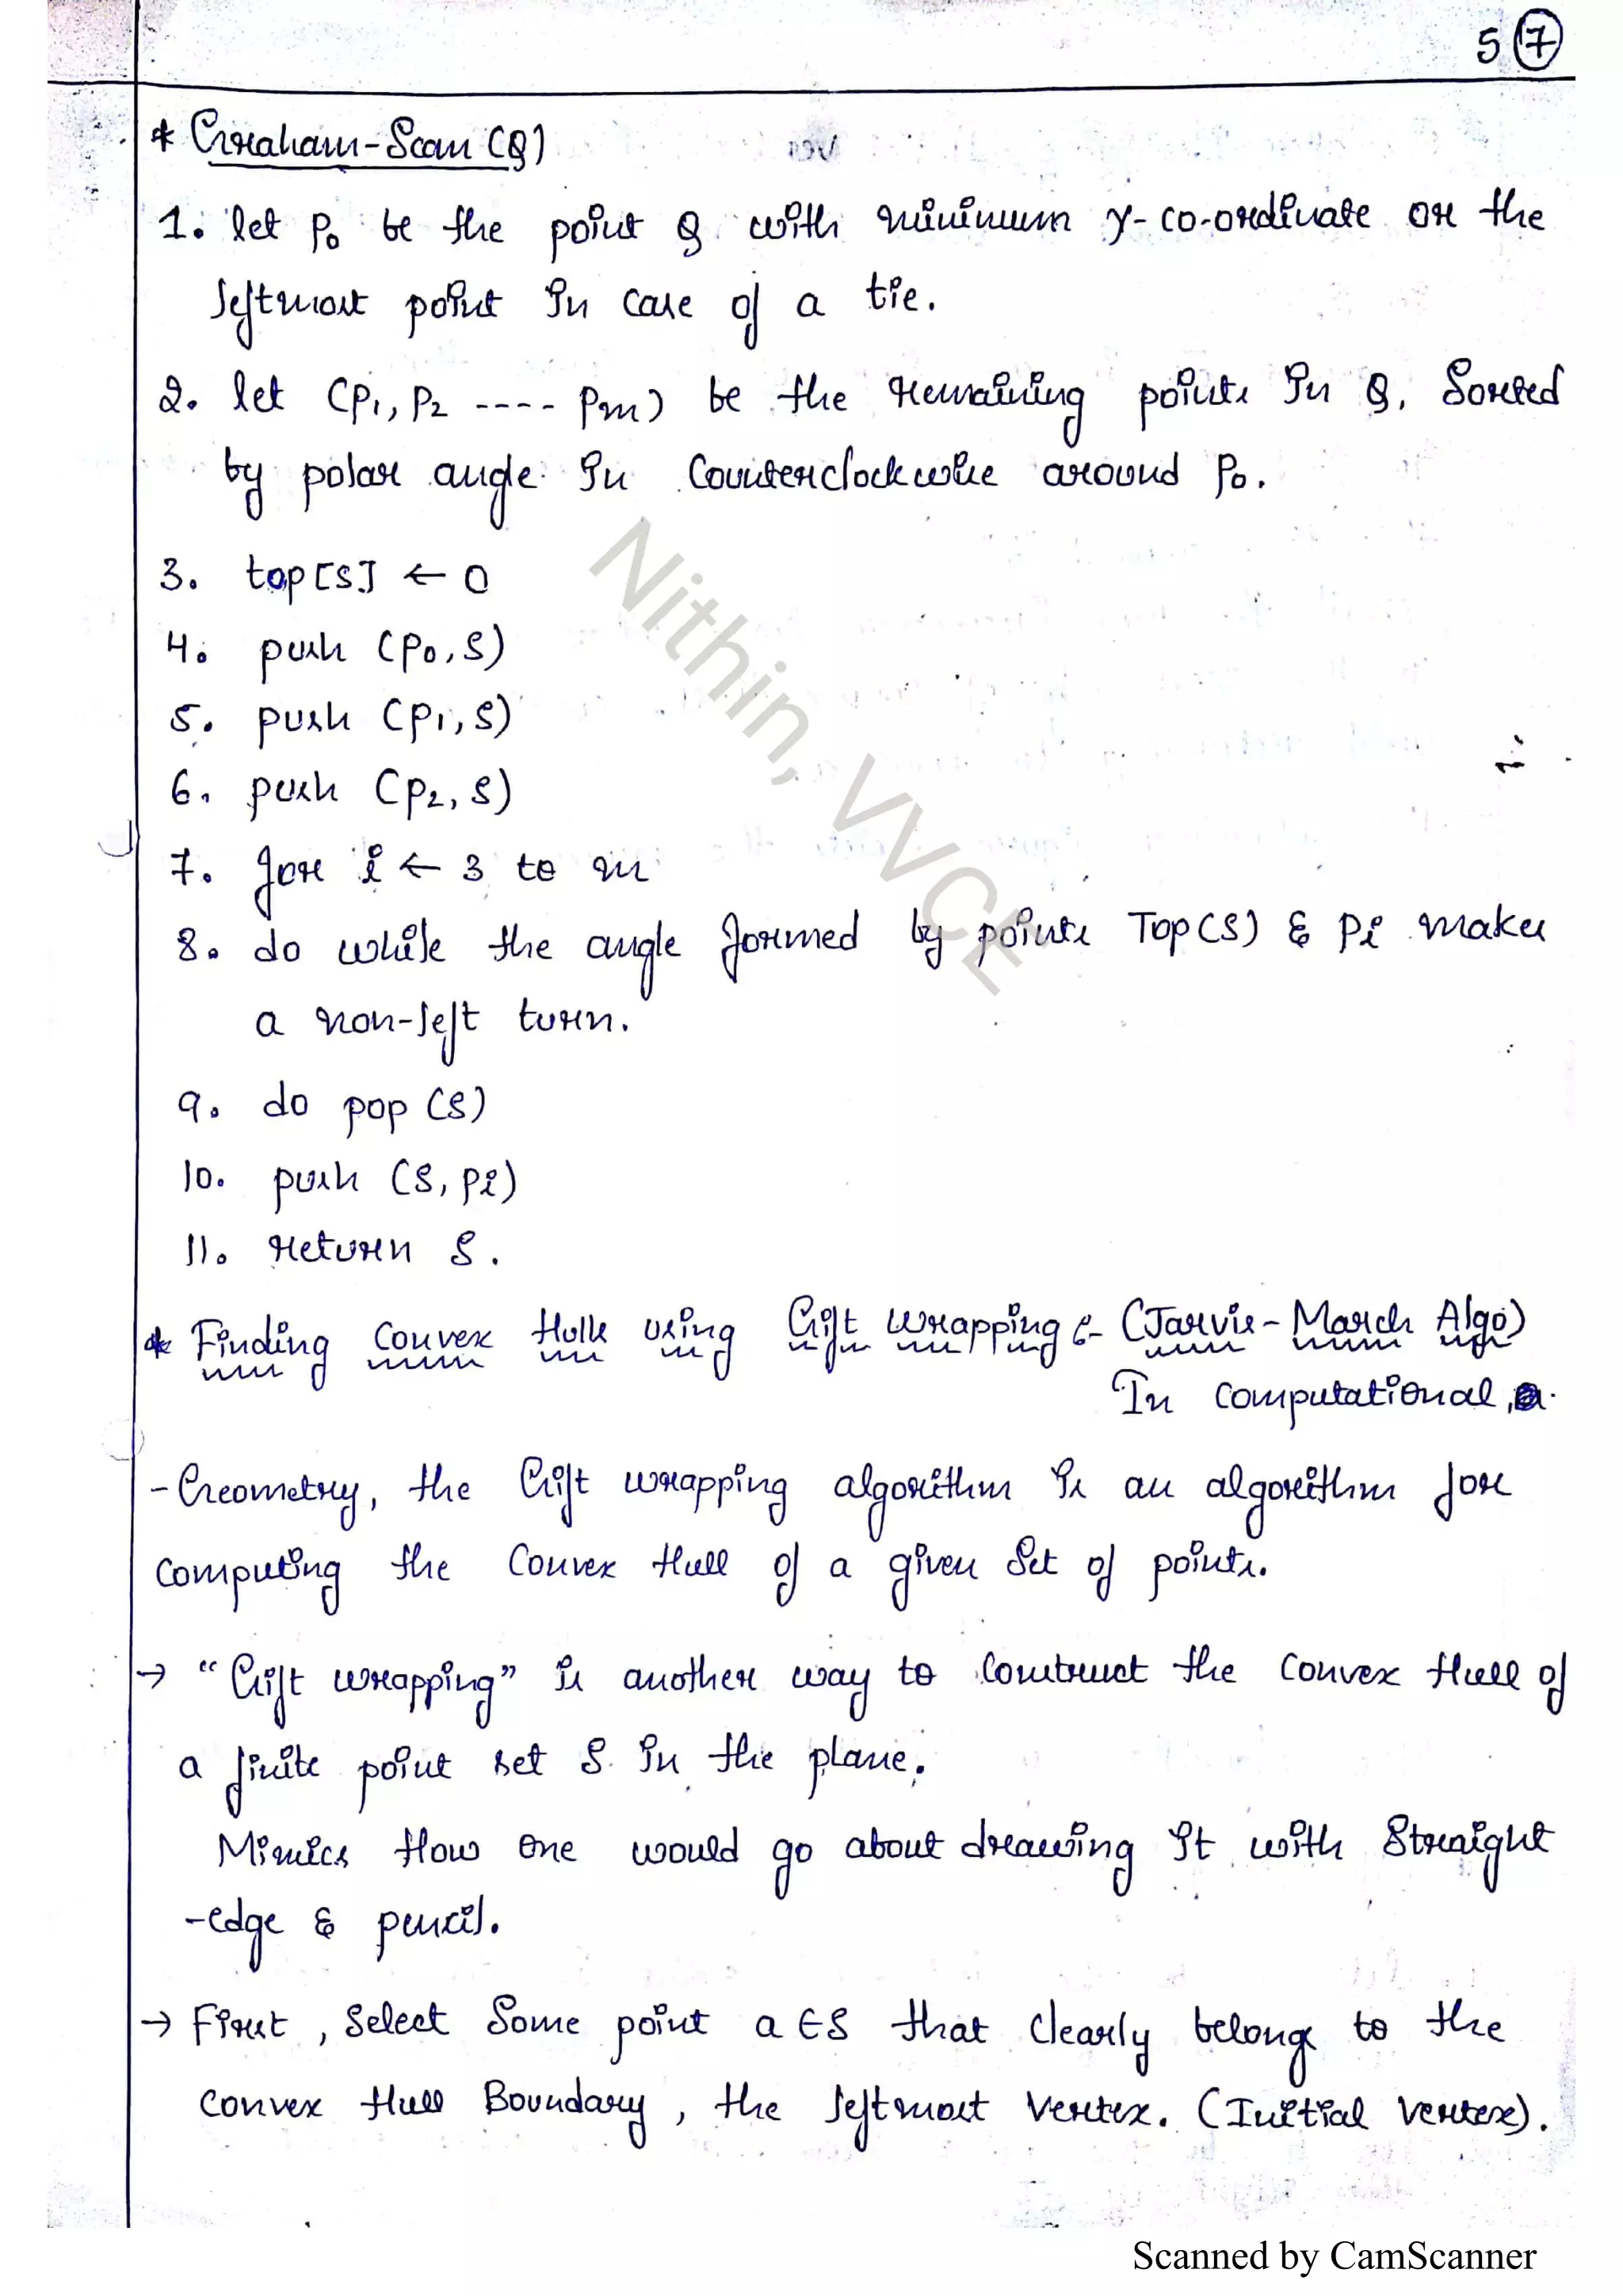 5 (7)
* Graham-Scan (Q)
1. let P0 be the point Q with minimum y-co-ordinate or the
leftmost point in case of a tie.
2. let (P1, P2 ---- Pm) be the remaining points in Q, Sorted
by polar angle in Counterclockwise around P0.
3. top[S] ← 0
4. push (P0, S)
5. push (P1, S)
6. push (P2, S)
7. for i ← 3 to m
8. do while the angle formed by points Top(S) & Pi makes
a non-left turn.
9. do pop (S)
10. push (S, Pi)
11. return S.
* Finding Convex Hulls using Gift wrapping :- (Jarvis-March Algo)
In computational,
- Geometry, the Gift wrapping algorithm is an algorithm for
computing the Convex Hull of a given Set of points.
→ "Gift wrapping" is another way to Construct the Convex Hull of
a finite point set S in the plane.
Mimics How one would go about drawing it with Straight
-edge & pencil.
→ First, Select Some point a ∈ S that clearly belongs to the
convex Hull Boundary, the leftmost Vertex. (Initial Vertex).
Nithin, VVCE
Scanned by CamScanner